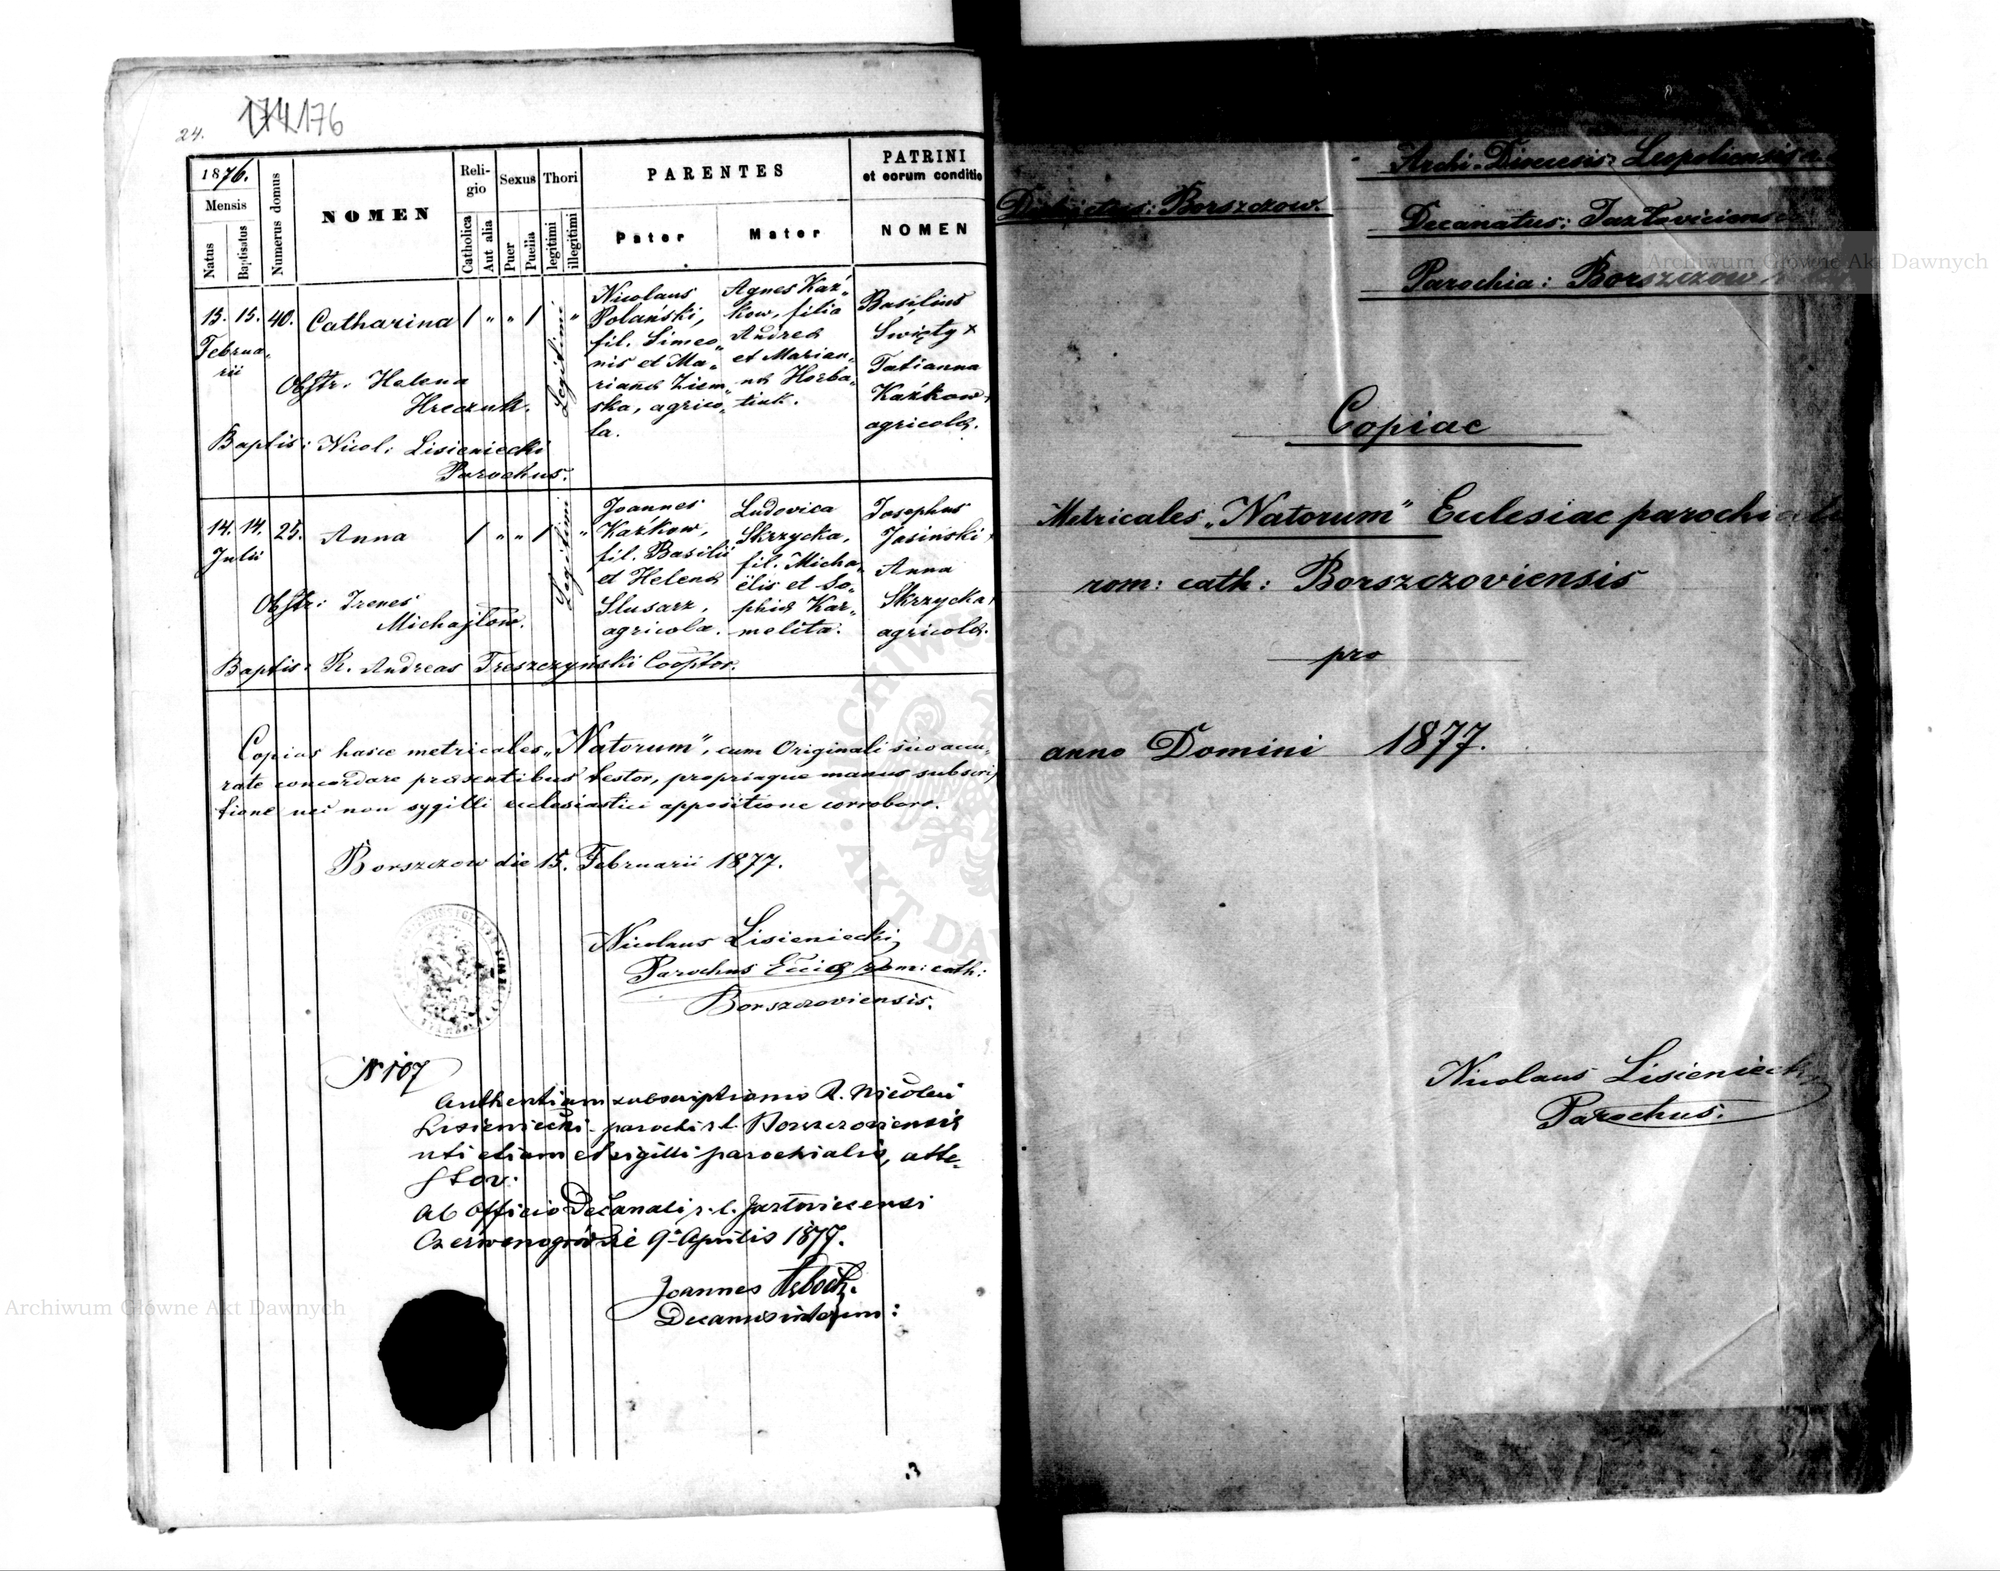 24.
174 176
1876.
Mensis
Natus
Baptisatus
Numerus domus
NOMEN
Religio
Catholica
Aut alia
Sexus
Puer
Puella
Thori
legitimi
illegitimi
PARENTES
Pater
Mater
PATRINI
et eorum conditio
NOMEN
15. 15. 40. Catharina / " " / Legitimi "
Februa-
rii
Obstr: Helena
Hreczuk.
Baptis: Nicol: Lisieniecki
Parochus.
Nicolaus
Polański,
fil. Simeo-
nis et Ma-
rianæ Ziem-
ska, agrico-
la.
Agnes Kaź-
kow, filia
Andreæ
et Marian-
næ Horba-
tiuk.
Basilius
Święty +
Tatianna
Kaźkow +
agricolæ.
14. 14. 25. Anna / " " / Legitimi "
Julii
Obstr: Irenes
Michajłow.
Baptis: R. Andreas Treszczyński Cooptor.
Joannes
Kaźkow,
fil. Basilii
et Helenæ
Slusarz,
agricola.
Ludovica
Skrzycka,
fil. Micha-
ëlis et So-
phiæ Kar-
melita.
Josephus
Jasiński +
Anna
Skrzycka +
agricolæ.
Copias hasce metricales „Natorum", cum Originali suo accu-
rate concordare præsentibus testor, propriaque manus subscrip
tione nec non sygilli ecclesiastici appositione corroboro.
Borszczow die 15. Februarii 1877.
Nicolaus Lisieniecki
Parochus Eccliæ rom: cath:
Borszczoviensis.
N 107
Authenticam subscriptionis R. Nicolai
Lisieniecki parochi r. l. Borszczoviensis
uti etiam et sigilli parochialis, atte-
stor.
Ab Officio Decanali r. l. Jazłoviecensi
Czerwonogródsie 9 Aprilis 1877.
Joannes
Decanus interim:
3
Archi-Diœcesis: Leopoliensis
Districtus: Borszczow.
Decanatus: Jazłoviciensis
Parochia: Borszczow
Copiae
Metricales „Natorum" Eclesiae parochialis
rom: cath: Borszczoviensis
pro
anno Domini 1877.
Nicolaus Lisieniecki
Parochus.
Archiwum Główne Akt Dawnych
Archiwum Główne Akt Dawnych
ARCHIWUM GŁÓWNE
AKT DAWNYCH